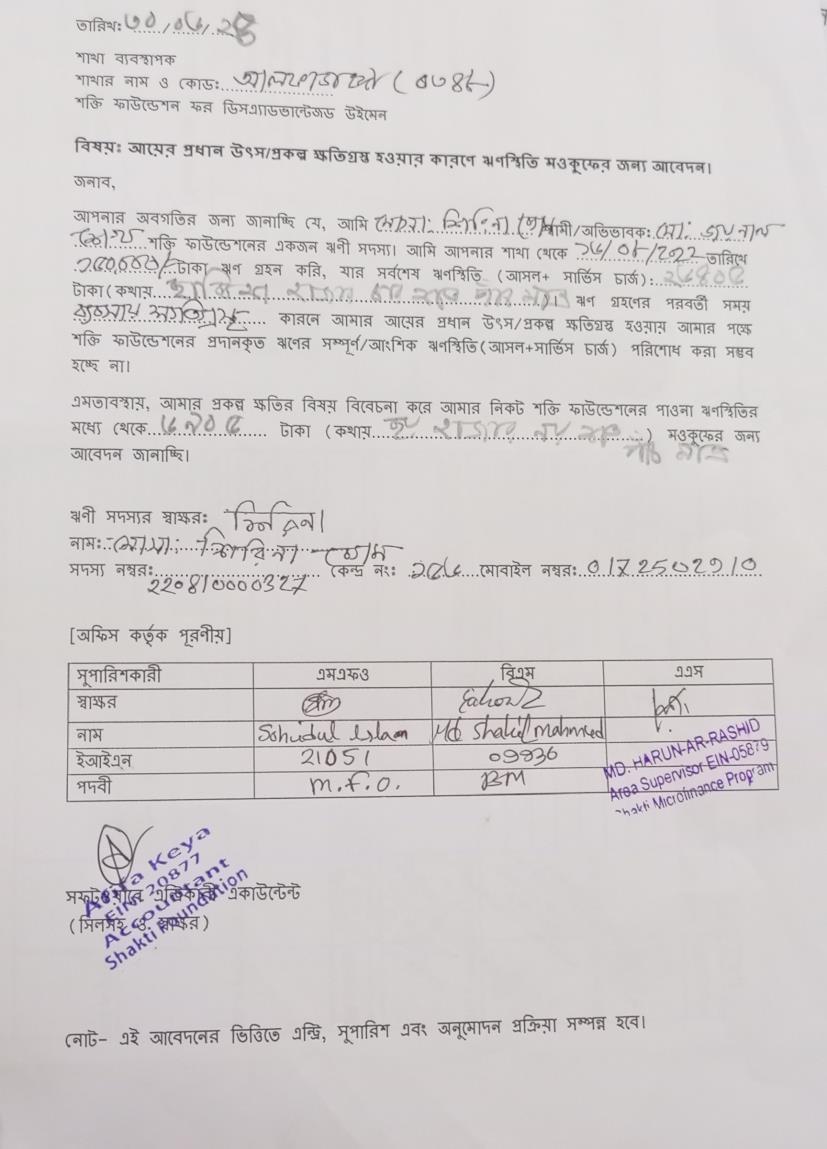 তারিখঃ ৩০/০৬/২৪
শাখা ব্যবস্থাপক
শাখার নাম ও কোডঃ আলফাডাঙ্গা (০৩৪৮)
শক্তি ফাউন্ডেশন ফর ডিসএ্যাডভান্টেজড উইমেন
বিষয়ঃ আয়ের প্রধান উৎস/প্রকল্প ক্ষতিগ্রস্ত হওয়ার কারণে ঋণস্থিতি মওকুফের জন্য আবেদন।
জনাব,
আপনার অবগতির জন্য জানাচ্ছি যে, আমি মোসাঃ স্বামী/অভিভাবকঃ মোঃ
শক্তি ফাউন্ডেশনের একজন ঋনী সদস্য। আমি আপনার শাখা থেকে /২০২২ তারিখে
টাকা ঋন গ্রহন করি, যার সর্বশেষ ঋনস্থিতি (আসল+ সার্ভিস চার্জ):
টাকা (কথায় )। ঋন গ্রহনের পরবর্তী সময়
কারনে আমার আয়ের প্রধান উৎস/প্রকল্প ক্ষতিগ্রস্ত হওয়ায় আমার পক্ষে
শক্তি ফাউন্ডেশনের প্রদানকৃত ঋনের সম্পূর্ন/আংশিক ঋনস্থিতি (আসল+সার্ভিস চার্জ) পরিশোধ করা সম্ভব
হচ্ছে না।
এমতাবস্থায়, আমার প্রকল্প ক্ষতির বিষয় বিবেচনা করে আমার নিকট শক্তি ফাউন্ডেশনের পাওনা ঋনস্থিতির
মধ্যে থেকে ৬৯০৫ টাকা (কথায় ছয় হাজার নয় শত ) মওকুফের জন্য
পাঁচ মাত্র
আবেদন জানাচ্ছি।
ঋনী সদস্যের স্বাক্ষরঃ শিরিনা
নামঃ মোসাঃ শিরিনা বেগম
সদস্য নম্বরঃ কেন্দ্র নংঃ মোবাইল নম্বরঃ
220810000327
[অফিস কর্তৃক পূরনীয়]
সুপারিশকারী এমএফও বিএম এএস
স্বাক্ষর
নাম Sohidul Islam Md Shakil Mahmud
ইআইএন 21051 09936
পদবী M.F.O. BM
MD. HARUN-AR-RASHID
Area Supervisor EIN-05879
Shakti Microfinance Program
Keya
EIN 20877
Accountant
Shakti Foundation
সফটওয়্যারে এন্ট্রিকারী একাউন্টেন্ট
(সিলসহ ও স্বাক্ষর)
নোট- এই আবেদনের ভিত্তিতে এন্ট্রি, সুপারিশ এবং অনুমোদন প্রক্রিয়া সম্পন্ন হবে।